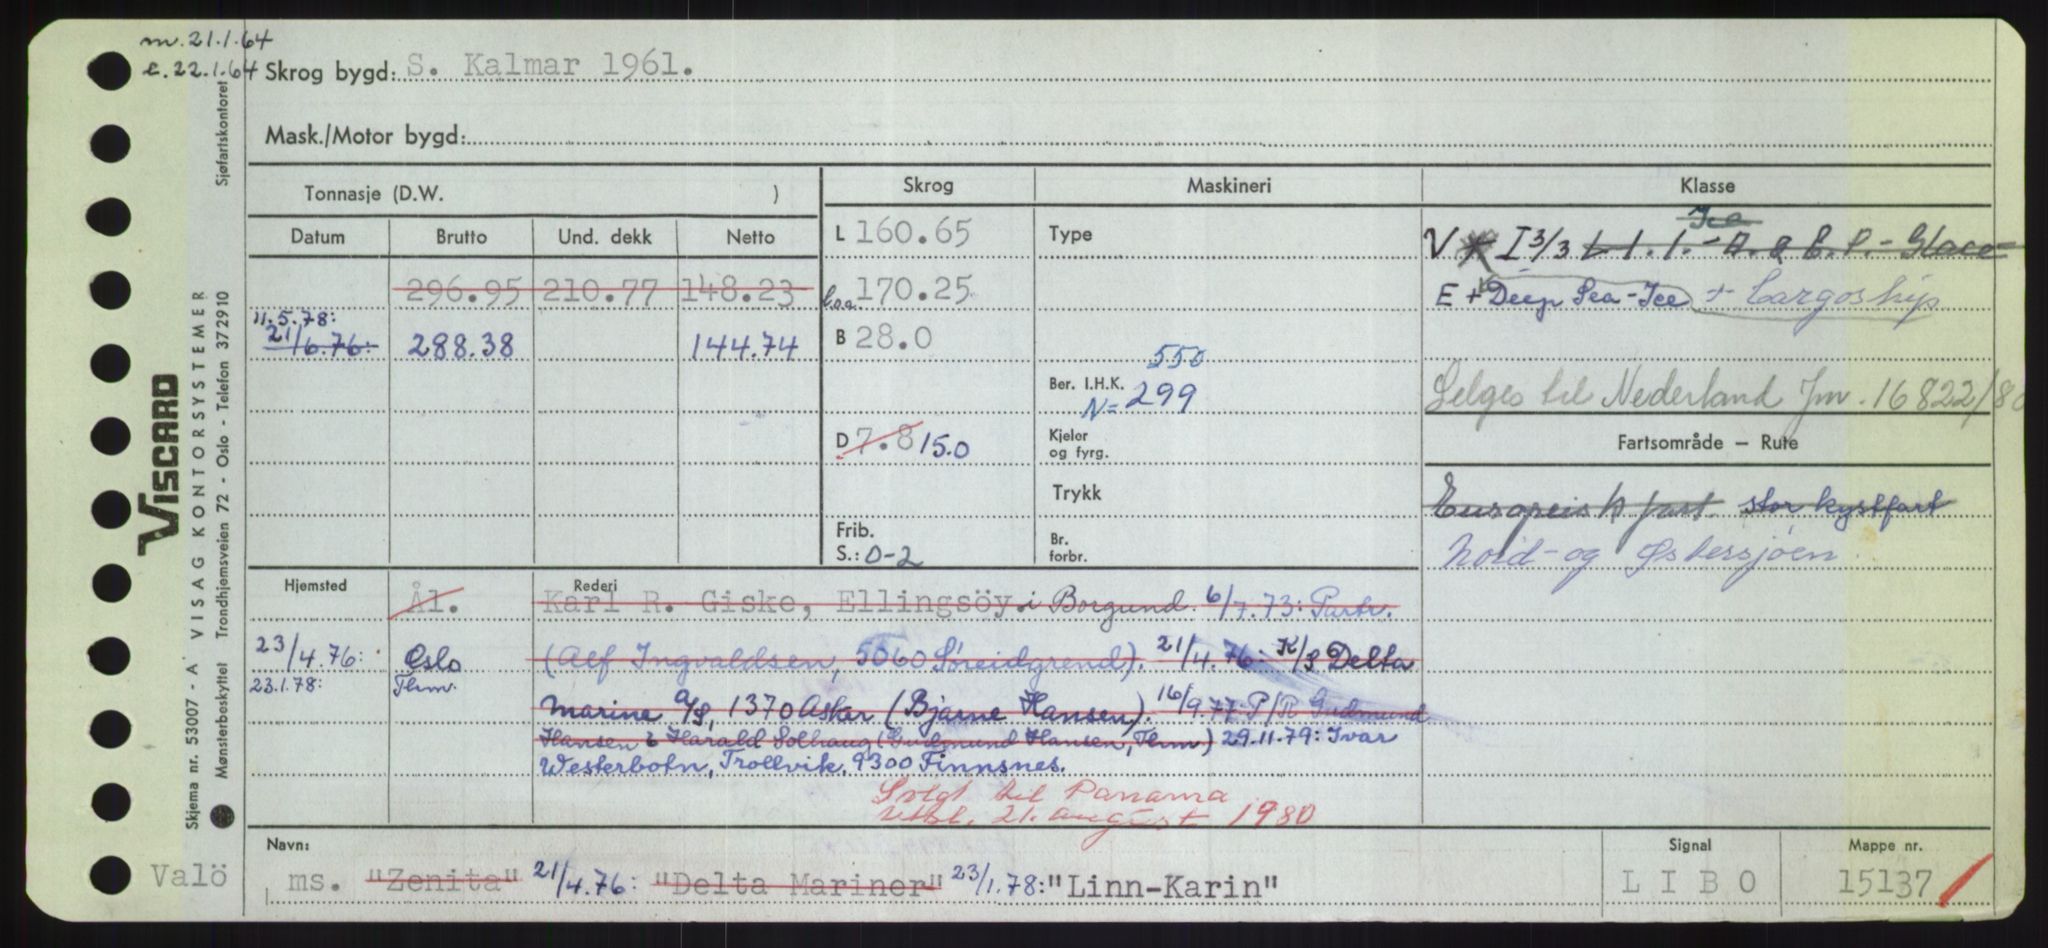 m. 21.1.64
e. 22.1.64 Skrog bygd: S. Kalmar 1961.
Mask./Motor bygd:
Sjøfartskontoret
VISCARD
VISAG KONTORSYSTEMER
Trondhjemsveien 72 - Oslo - Telefon 372910
Skjema nr. 53007 - A
Mønsterbeskyttet
Tonnasje (D.W. )
Skrog Maskineri Klasse
Datum Brutto Und. dekk Netto
L 160.65 Type
Ice
V I 3/3 L 1.1. - A. & E.P. - Glace
296.95 210.77 148.23
l.oa 170.25
E + Deep Sea - Ice + Cargoship
11.5.78:
21/6.76: 288.38 144.74
B 28.0
550
Ber. I.H.K.
N= 299
Selges til Nederland Jm. 16822/80
D 7.8 15.0
Kjeler
og fyrg.
Fartsområde — Rute
Trykk
Europeisk fart. stor kystfart
Frib.
S.: 0-2
Br.
forbr.
Nord- og Østersjøen.
Hjemsted Rederi
Ål. Karl R. Giske, Ellingsöy i Borgund. 6/7.73: Partr.
23/4.76: Oslo (Alf Ingvaldsen, 5060 Søreidgrend). 21/4.76: K/S Delta
23.1.78: Thm. Marine A/S, 1370 Asker (Bjarne Hansen). 16/9.77: P/R Gudmund
Hansen & Harald Solhaug (Gudmund Hansen, Thm) 29.11.79: Ivar
Westerbotn, Trollvik, 9300 Finnsnes.
Solgt til Panama
utbl. 21. august 1980
Navn: Signal Mappe nr.
Valö
ms. "Zenita" 21/4.76: "Delta Mariner" 23/1.78: "Linn-Karin" L I B O 15137